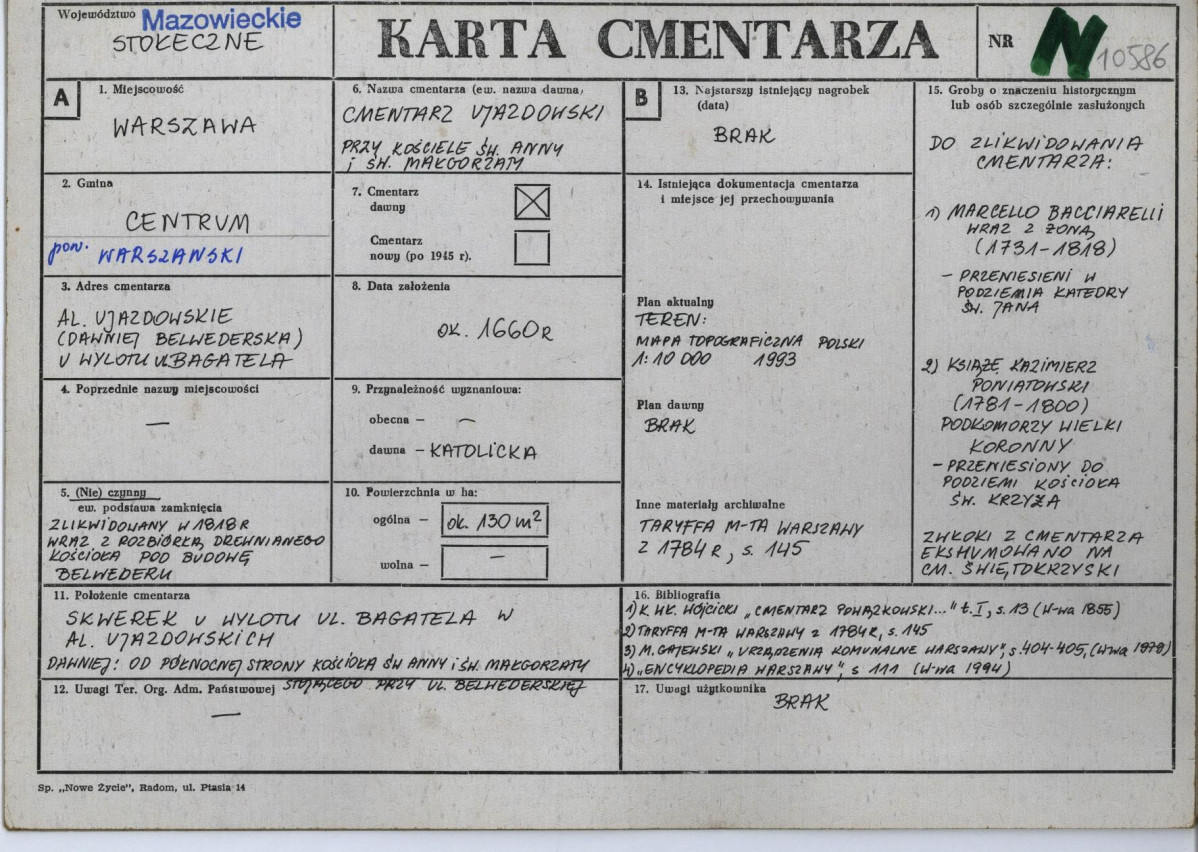 Województwo Mazowieckie
STOŁECZNE
KARTA CMENTARZA
NR N 10586
A
1. Miejscowość
WARSZAWA
2. Gmina
CENTRUM
pow. WARSZAWSKI
3. Adres cmentarza
AL. UJAZDOWSKIE
(DAWNIEJ BELWEDERSKA)
U WYLOTU UL BAGATELA
4. Poprzednie nazwy miejscowości
—
5. (Nie) czynny
ew. podstawa zamknięcia
ZLIKWIDOWANY W 1818 R
WRAZ Z ROZBIÓRKĄ DREWNIANEGO
KOŚCIOŁA POD BUDOWĘ
BELWEDERU
6. Nazwa cmentarza (ew. nazwa dawna)
CMENTARZ UJAZDOWSKI
PRZY KOŚCIELE ŚW. ANNY
I ŚW. MAŁGORZATY
7. Cmentarz
dawny
Cmentarz
nowy (po 1945 r).
8. Data założenia
OK. 1660 R
9. Przynależność wyznaniowa:
obecna — —
dawna — KATOLICKA
10. Powierzchnia w ha:
ogólna — OK. 130 m²
wolna — —
B
13. Najstarszy istniejący nagrobek
(data)
BRAK
14. Istniejąca dokumentacja cmentarza
i miejsce jej przechowywania
Plan aktualny
TEREN:
MAPA TOPOGRAFICZNA POLSKI
1:10 000 1993
Plan dawny
BRAK
Inne materiały archiwalne
TARYFFA M-TA WARSZAWY
Z 1784 R, s. 145
15. Groby o znaczeniu historycznym
lub osób szczególnie zasłużonych
DO ZLIKWIDOWANIA
CMENTARZA:
1) MARCELLO BACCIARELLI
WRAZ Z ŻONĄ
(1731-1818)
- PRZENIESIENI W
PODZIEMIA KATEDRY
ŚW. JANA
2) KSIĄŻĘ KAZIMIERZ
PONIATOWSKI
(1781-1800)
PODKOMORZY WIELKI
KORONNY
- PRZENIESIONY DO
PODZIEMI KOŚCIOŁA
ŚW. KRZYŻA
ZWŁOKI Z CMENTARZA
EKSHUMOWANO NA
CM. ŚWIĘTOKRZYSKI
11. Położenie cmentarza
SKWEREK U WYLOTU UL. BAGATELA W
AL. UJAZDOWSKICH
DAWNIEJ: OD PÓŁNOCNEJ STRONY KOŚCIOŁA ŚW ANNY I ŚW. MAŁGORZATY
STOJĄCEGO PRZY UL. BELWEDERSKIEJ
12. Uwagi Ter. Org. Adm. Państwowej
—
16. Bibliografia
1) K. WŁ. WÓJCICKI „CMENTARZ POWĄZKOWSKI..." t. I, s. 13 (W-wa 1855)
2) TARYFFA M-TA WARSZAWY z 1784 R, s. 145
3) M. GAJEWSKI „URZĄDZENIA KOMUNALNE WARSZAWY", s. 404-405, (W-wa 1979)
4) „ENCYKLOPEDIA WARSZAWY", s 111 (W-wa 1994)
17. Uwagi użytkownika
BRAK
Sp. „Nowe Życie", Radom, ul. Ptasia 14